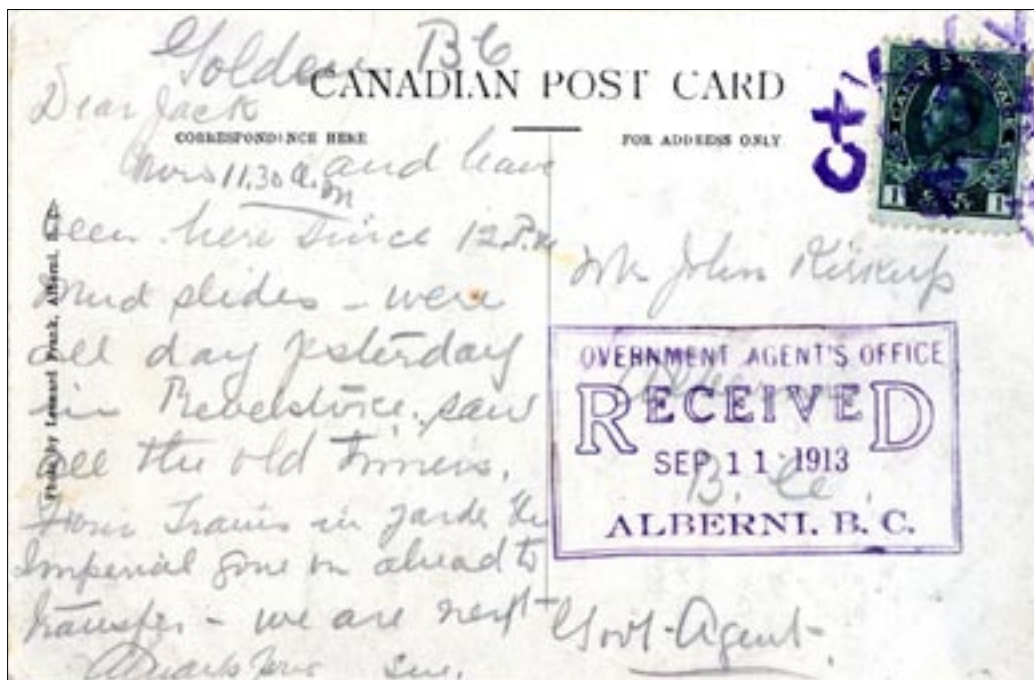 Golden BC
CANADIAN POST CARD
CORRESPONDENCE HERE
FOR ADDRESS ONLY
Dear Jack
11.30 a.m and have
been here since 12 P.M
mud slides - were
all day yesterday
in Revelstoke, saw
all the old timers.
Four Trains in yards the
Imperial gone on ahead to
transfer - we are next -
Photo by Leonard Frank, Alberni, B.C.
1 1
Mr John Kirkup
Alberni
B. C.
Govt - Agent -
OVERNMENT AGENT'S OFFICE
RECEIVED
SEP 11 1913
ALBERNI. B. C.